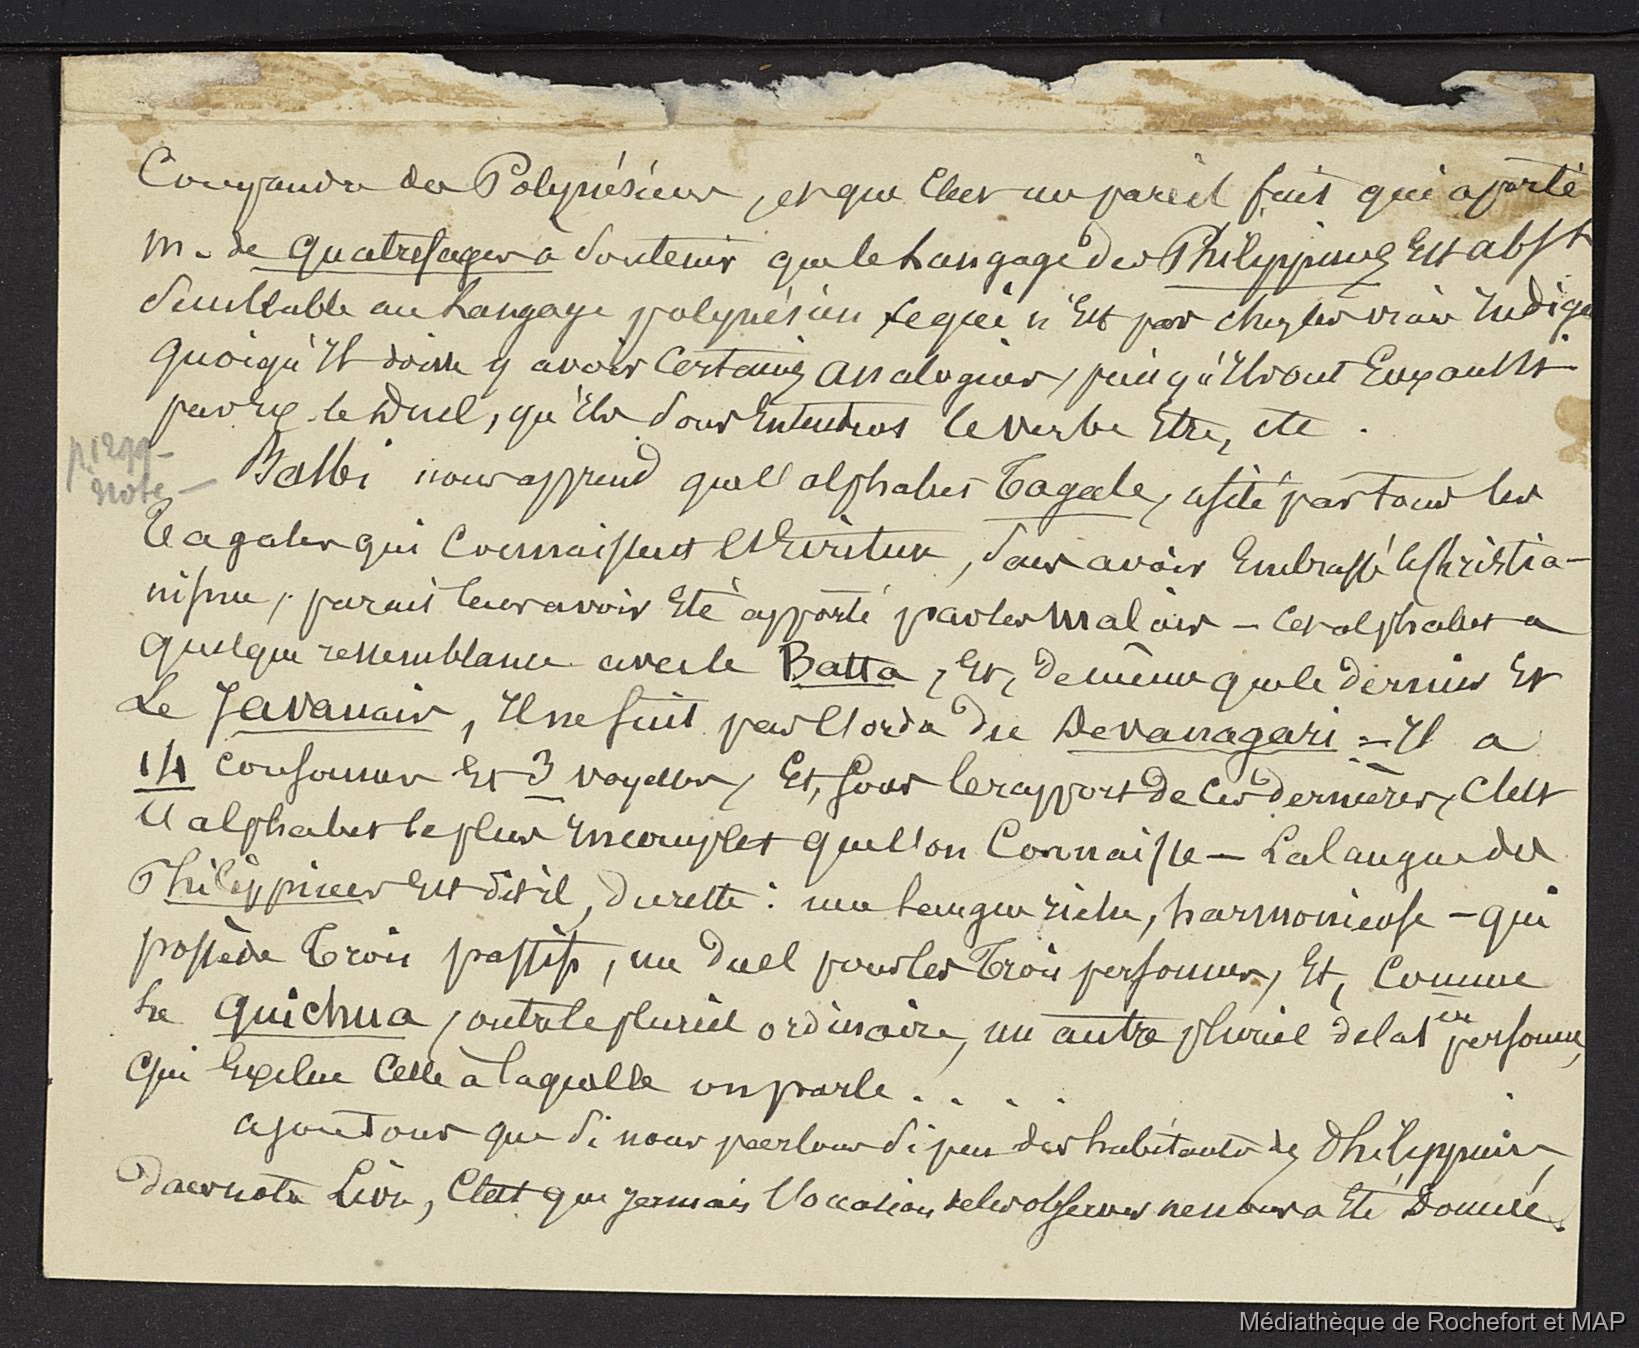 Comprendre des Polynésiens, et que c'est un pareil fait qui a porté
M. de Quatrefages a soutenir que le Langage des Philippines Est abst
semblable au Langage polynésien, ce qui n'Est pas chez les vrais indig
quoiqu'Il doive y avoir Certaines analogies, puisqu'Ils ont Eux aussi
par Ex. le Duel, qu'Ils sous Entendent le verbe Etre, etc.
p. 1299 - note -
Balbi nous apprend que l'alphabet Tagale, usité par tous les
Tagales qui Connaissent l'Ecriture, sans avoir Embrassé le Christia-
nisme, parait leur avoir Eté apporté par les Malais - Cet alphabet a
quelque ressemblance avec le Batta, Et, de même que le dernier Et
Le Javanais, Il ne suit pas l'ordre du Devanagari - Il a
14 consonnes Et 3 voyelles, Et, sous le rapport de Ces dernières, C'est
l'alphabet le plus Incomplet que l'on Connaisse - La langue des
Philippines Est dit il, du reste : une langue riche, harmonieuse - qui
possède Trois passifs, un duel pour les Trois personnes, Et, Comme
Le Quichua, outre le pluriel ordinaire, un autre pluriel de la 1ere personne,
qui Exclue Celle à laquelle on parle . . . .
ajoutons que si nous parlons si peu des habitants des Philippines,
dans notre Livre, C'est que jamais l'occasion de les observer ne nous a Eté Donnée.
Médiathèque de Rochefort et MAP